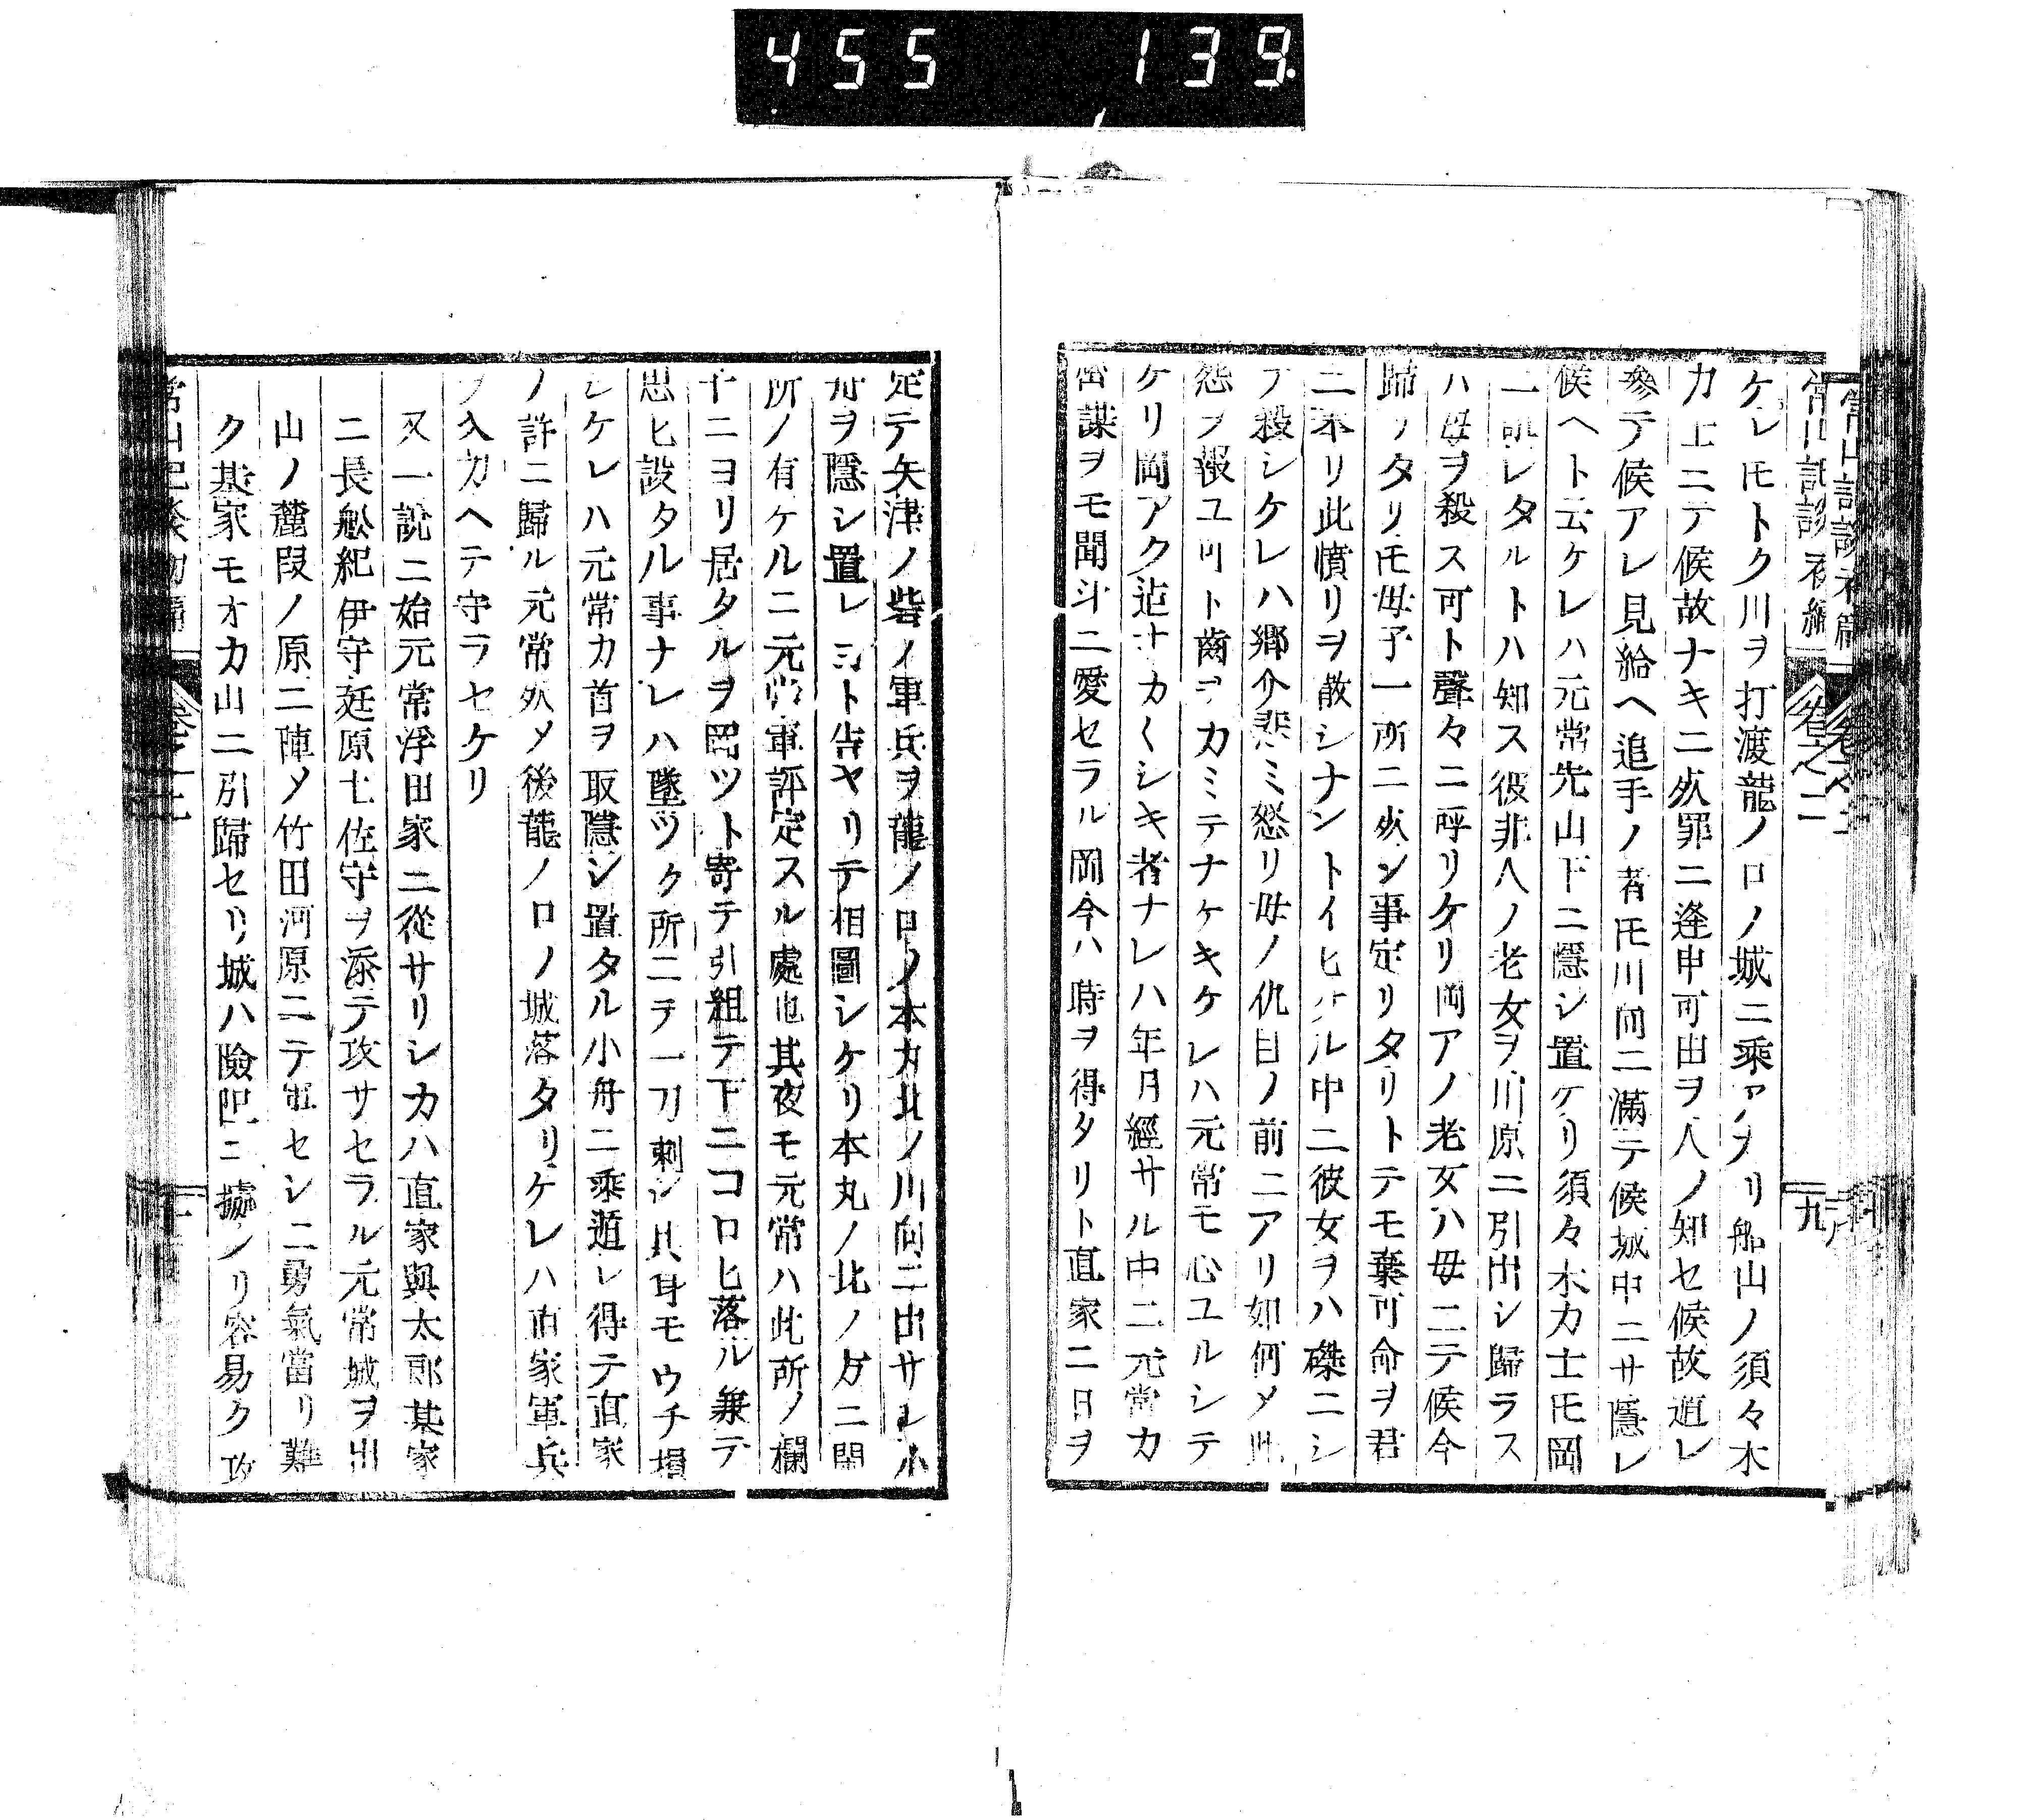 455 139
常山記談初編 卷之二 九
ケレ𪜈トク川ヲ打渡龍ノロノ城ニ乘アカリ船山ノ須々木
カ士ニテ候故ナキニ死罪ニ逢申可出ヲ人ノ知セ候故遁レ
參テ候アレ見給ヘ追手ノ者𪜈川向ニ滿テ候城中ニサ隱レ
候ヘト云ケレハ元常先山下ニ隱シ置ケリ須々木カ士𪜈岡
ニ訛レタルトハ知ス彼非人ノ老女ヲ川原ニ引出シ歸ラス
ハ母ヲ殺ス可ト聲々ニ呼リケリ岡アノ老女ハ母ニテ候今
歸リタリ𪜈母子一所ニ死ン事定リタリトテモ棄可命ヲ君
ニ奉リ此憤リヲ散シナントイヒケル中ニ彼女ヲハ磔ニシ
テ殺シケレハ郷介悲ミ怒リ母ノ仇目ノ前ニアリ如何メ此
怨ヲ報ユ可ト齒ヲカミテナケキケレハ元常モ心ユルシテ
ケリ岡アク迄サカ〱シキ者ナレハ年月經サル中ニ元常カ
密謀ヲモ聞斗ニ愛セラル岡今ハ時ヲ得タリト直家ニ日ヲ
定テ矢津ノ砦ノ軍兵ヲ龍ノロノ本丸北ノ川向ニ出サレ小
舟ヲ隱シ置レヨト告ヤリテ相圖シケリ本丸ノ北ノカニ閑
所ノ有ケルニ元常軍評定スル處也其夜モ元常ハ此所ノ欄
干ニヨリ居タルヲ岡ツト寄テ引組テ下ニコロヒ落ル兼テ
思ヒ設タル事ナレハ墜ツク所ニテ一刀刺シ其身モウチ損
レケレハ元常カ首ヲ取隱シ置タル小舟ニ乘遁レ得テ直家
ノ許ニ歸ル元常死メ後龍ノロノ城落タリケレハ直家軍兵
ヲ入カヘテ守ラセケリ
又一説ニ始元常浮田家ニ從サリシカハ直家與太郎某家
ニ長舩紀伊守廷原土佐守ヲ添テ攻サセラル元常城ヲ出
山ノ麓段ノ原ニ陣メ竹田河原ニテ軍セシニ勇氣當リ難
ク基家モオカ山ニ引歸セリ城ハ險阻ニ據ノリ容易ク攻